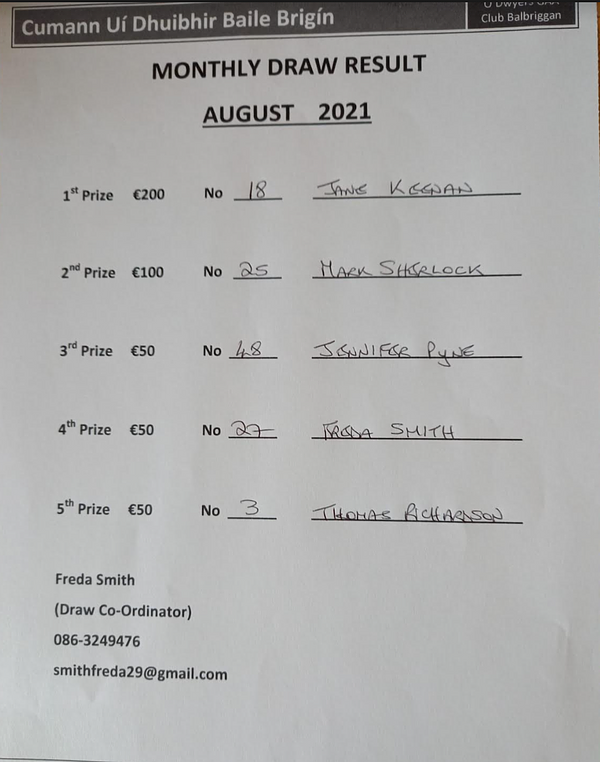 Cumann Uí Dhuibhir Baile Brigín
O'Dwyers GAA
Club Balbriggan
MONTHLY DRAW RESULT
AUGUST 2021
1st Prize €200 No 18 JANE KEENAN
2nd Prize €100 No 25 MARK SHERLOCK
3rd Prize €50 No 48 JENNIFER PYNE
4th Prize €50 No 27 FREDA SMITH
5th Prize €50 No 3 THOMAS RICHARDSON
Freda Smith
(Draw Co-Ordinator)
086-3249476
smithfreda29@gmail.com